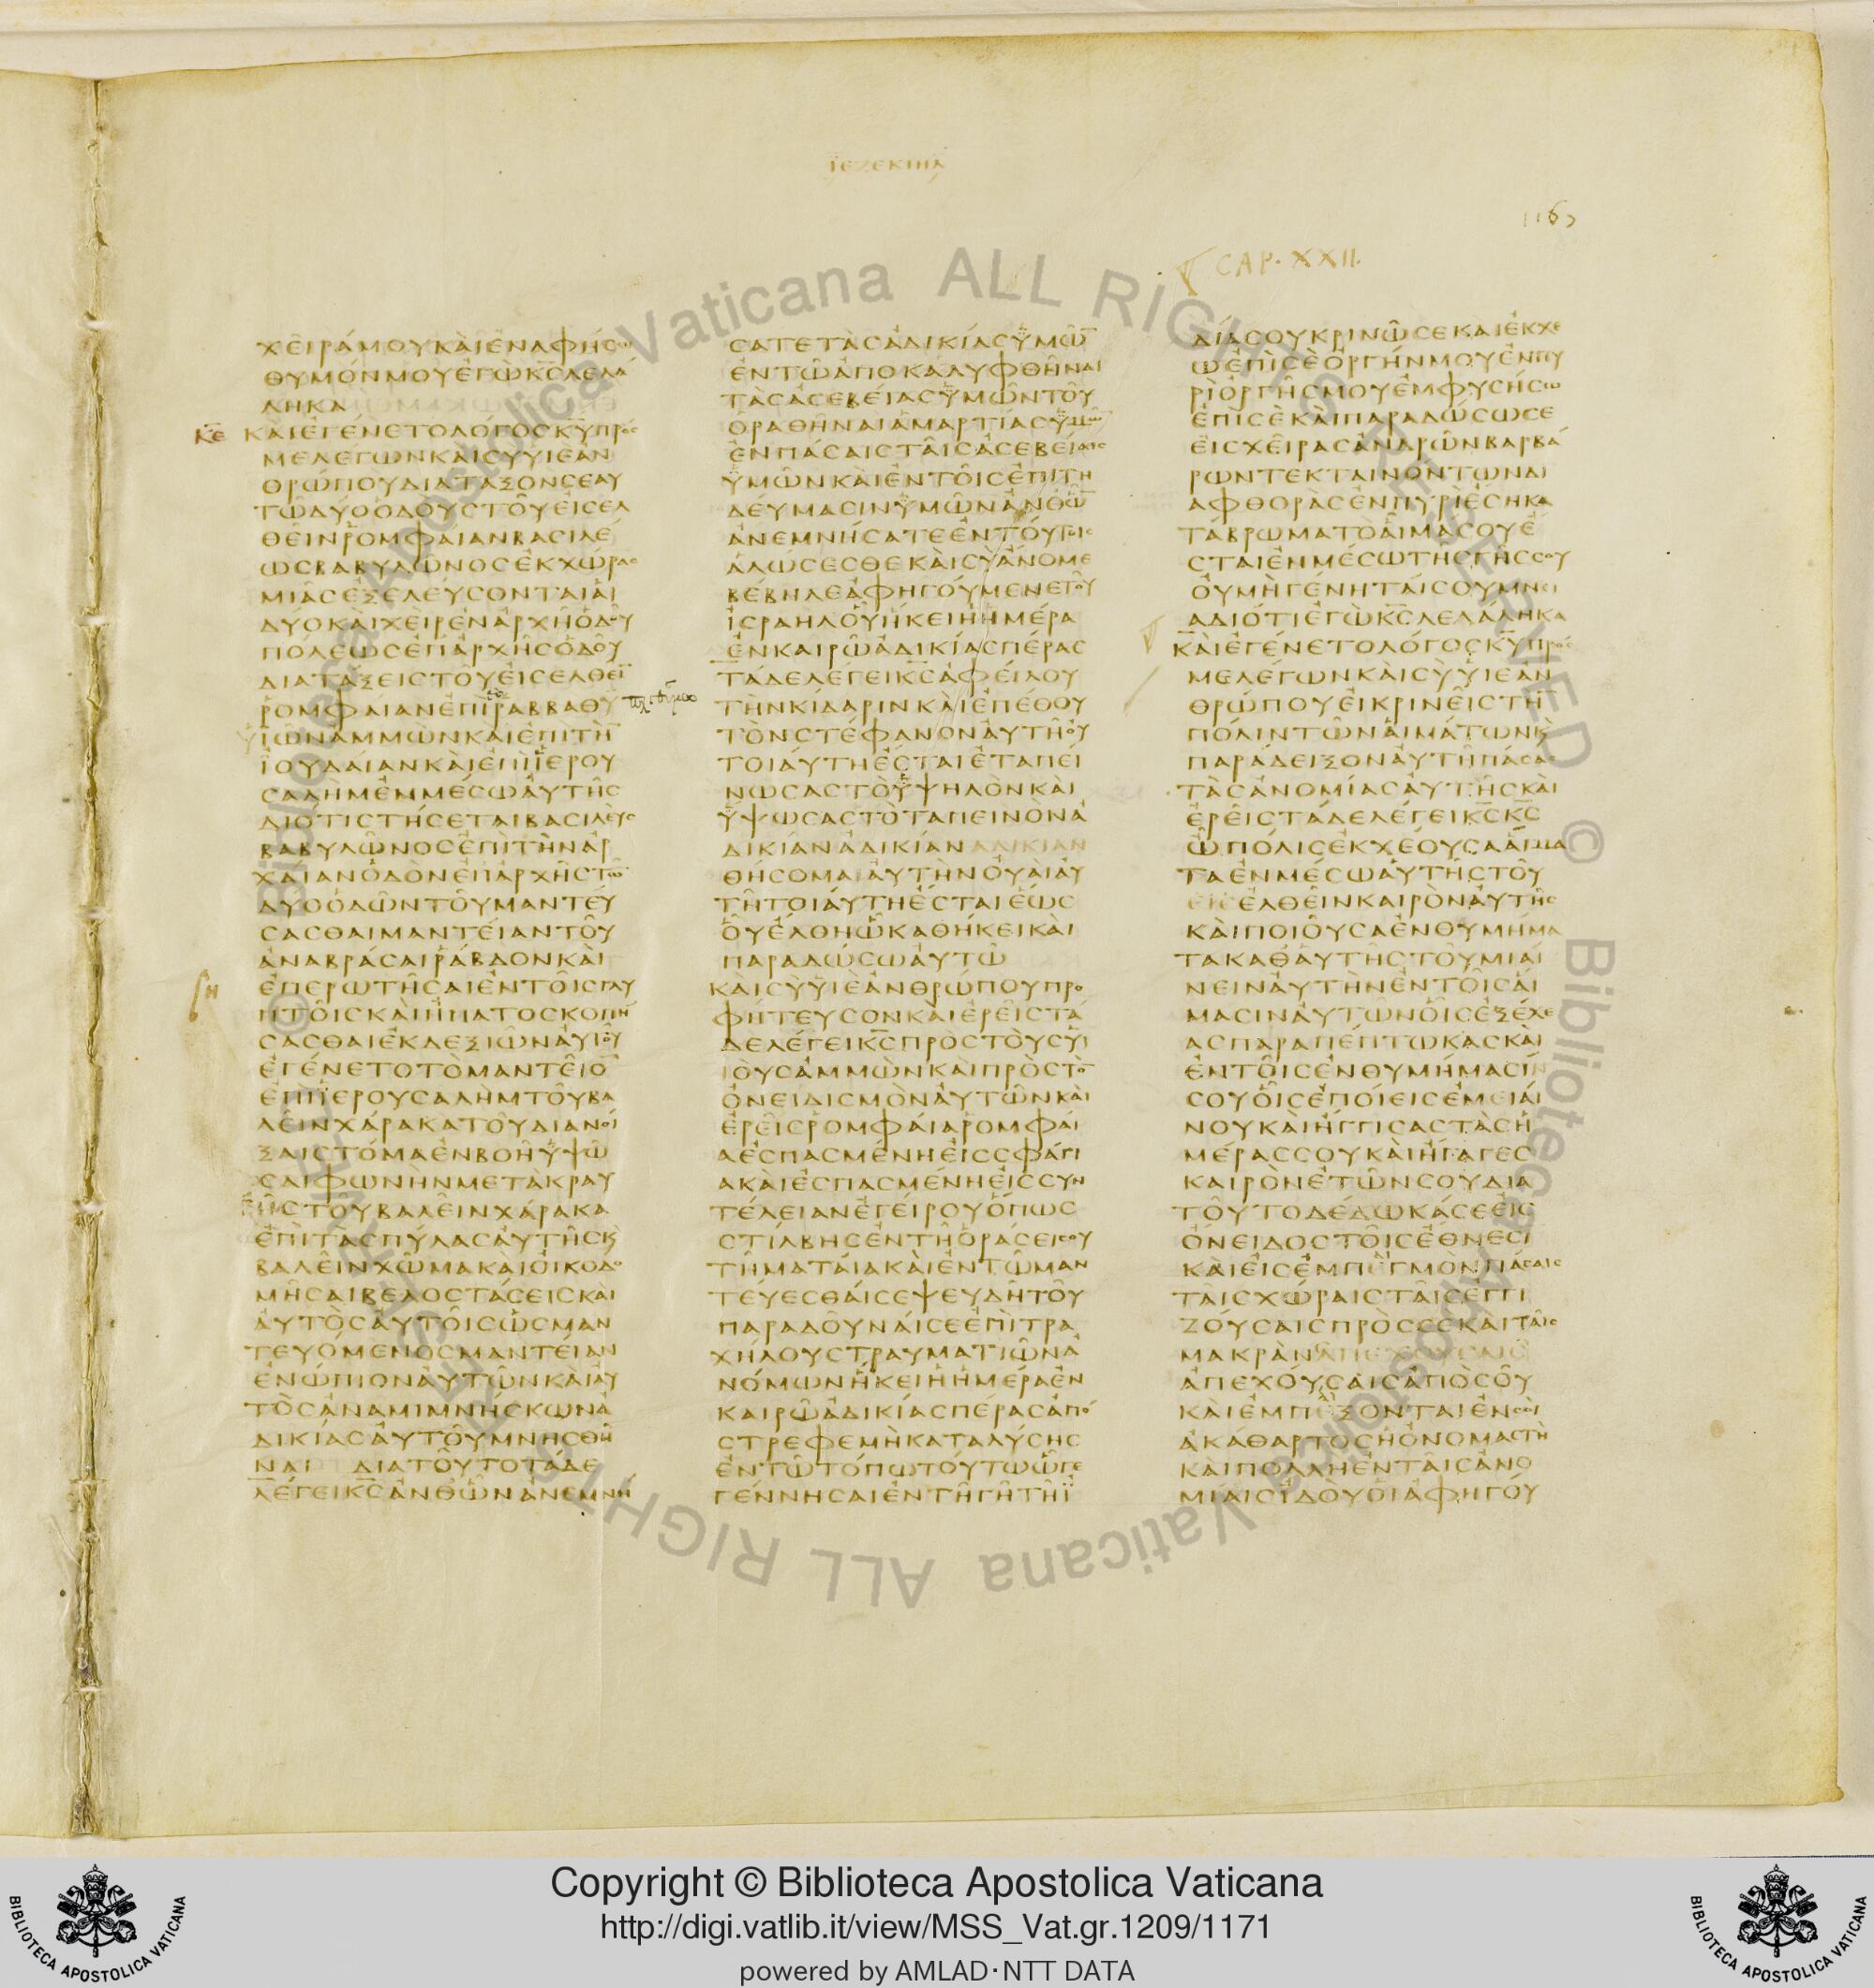 ΙΕΖΕΚΙΗΛ
1163
CAP. XXII.
ΧΕΙΡΑΜΟΥΚΑΙΕΝΑΦΗΣΩ
ΘΥΜΟΝΜΟΥΕΓΩΚΣΛΕΛΑ
ΛΗΚΑ
ΚΕ
ΚΑΙΕΓΕΝΕΤΟΛΟΓΟΣΚΥΠΡΟΣ
ΜΕΛΕΓΩΝΚΑΙΣΥΥΙΕΑΝ
ΘΡΩΠΟΥΔΙΑΤΑΞΟΝΣΕΑΥ
ΤΩΔΥΟΟΔΟΥΣΤΟΥΕΙΣΕΛ
ΘΕΙΝΡΟΜΦΑΙΑΝΒΑΣΙΛΕ
ΩΣΒΑΒΥΛΩΝΟΣΕΚΧΩΡΑΣ
ΜΙΑΣΕΞΕΛΕΥΣΟΝΤΑΙΑΙ
ΔΥΟΚΑΙΧΕΙΡΕΝΑΡΧΗΟΔΟΥ
ΠΟΛΕΩΣΕΠΑΡΧΗΣΟΔΟΥ
ΔΙΑΤΑΞΕΙΣΤΟΥΕΙΣΕΛΘΕΙ
ΡΟΜΦΑΙΑΝΕΠΙΡΑΒΒΑΘΥ
ΙΩΝΑΜΜΩΝΚΑΙΕΠΙΤΗ
ΙΟΥΔΑΙΑΝΚΑΙΕΠΙΙΕΡΟΥ
ΣΑΛΗΜΕΜΜΕΣΩΑΥΤΗΣ
ΔΙΟΤΙΣΤΗΣΕΤΑΙΒΑΣΙΛΕΥΣ
ΒΑΒΥΛΩΝΟΣΕΠΙΤΗΝΑΡ
ΧΑΙΑΝΟΔΟΝΕΠΑΡΧΗΣΤΩ
ΔΥΟΟΔΩΝΤΟΥΜΑΝΤΕΥ
ΣΑΣΘΑΙΜΑΝΤΕΙΑΝΤΟΥ
ΑΝΑΒΡΑΣΑΙΡΑΒΔΟΝΚΑΙ
ΕΠΕΡΩΤΗΣΑΙΕΝΤΟΙΣΓΛΥ
ΠΤΟΙΣΚΑΙΗΠΑΤΟΣΚΟΠΗ
ΣΑΣΘΑΙΕΚΔΕΞΙΩΝΑΥΤΟΥ
ΕΓΕΝΕΤΟΤΟΜΑΝΤΕΙΟ
ΕΠΙΙΕΡΟΥΣΑΛΗΜΤΟΥΒΑ
ΛΕΙΝΧΑΡΑΚΑΤΟΥΔΙΑΝΟΙ
ΞΑΙΣΤΟΜΑΕΝΒΟΗΥΨΩ
ΣΑΙΦΩΝΗΝΜΕΤΑΚΡΑΥ
ΓΗΣΤΟΥΒΑΛΕΙΝΧΑΡΑΚΑ
ΕΠΙΤΑΣΠΥΛΑΣΑΥΤΗΣΚ
ΒΑΛΕΙΝΧΩΜΑΚΑΙΟΙΚΟΔΟ
ΜΗΣΑΙΒΕΛΟΣΤΑΣΕΙΣΚΑΙ
ΑΥΤΟΣΑΥΤΟΙΣΩΣΜΑΝ
ΤΕΥΟΜΕΝΟΣΜΑΝΤΕΙΑΝ
ΕΝΩΠΙΟΝΑΥΤΩΝΚΑΙΑΥ
ΤΟΣΑΝΑΜΙΜΝΗΣΚΩΝΑ
ΔΙΚΙΑΣΑΥΤΟΥΜΝΗΣΘΗ
ΝΑΙ ΔΙΑΤΟΥΤΟΤΑΔΕ
ΛΕΓΕΙΚΣΑΝΘΩΝΑΝΕΜΝΗ
ΣΑΤΕΤΑΣΑΔΙΚΙΑΣΥΜΩ
ΕΝΤΩΑΠΟΚΑΛΥΦΘΗΝΑΙ
ΤΑΣΑΣΕΒΕΙΑΣΥΜΩΝΤΟΥ
ΟΡΑΘΗΝΑΙΑΜΑΡΤΙΑΣΥΜΩΝ
ΕΝΠΑΣΑΙΣΤΑΙΣΑΣΕΒΕΙΑΙΣ
ΥΜΩΝΚΑΙΕΝΤΟΙΣΕΠΙΤΗ
ΔΕΥΜΑΣΙΝΥΜΩΝΑΝΘΩ
ΑΝΕΜΝΗΣΑΤΕΕΝΤΟΥΤΟΙΣ
ΑΛΩΣΕΣΘΕΚΑΙΣΥΑΝΟΜΕ
ΒΕΒΗΛΕΑΦΗΓΟΥΜΕΝΕΤΟΥ
ΙΣΡΑΗΛΟΥΗΚΕΙΗΗΜΕΡΑ
ΕΝΚΑΙΡΩΑΔΙΚΙΑΣΠΕΡΑΣ
ΤΑΔΕΛΕΓΕΙΚΣΑΦΕΙΛΟΥ
ΤΗΝΚΙΔΑΡΙΝΚΑΙΕΠΕΘΟΥ
ΤΟΝΣΤΕΦΑΝΟΝΑΥΤΗΟΥ
ΤΟΙΑΥΤΗΕΣΤΑΙΕΤΑΠΕΙ
ΝΩΣΑΣΤΟΥΨΗΛΟΝΚΑΙ
ΥΨΩΣΑΣΤΟΤΑΠΕΙΝΟΝΑ
ΔΙΚΙΑΝΑΔΙΚΙΑΝΑΔΙΚΙΑΝ
ΘΗΣΟΜΑΙΑΥΤΗΝΟΥΑΙΑΥ
ΤΗΤΟΙΑΥΤΗΕΣΤΑΙΕΩΣ
ΟΥΕΛΘΗΩΚΑΘΗΚΕΙΚΑΙ
ΠΑΡΑΔΩΣΩΑΥΤΩ
ΚΑΙΣΥΥΙΕΑΝΘΡΩΠΟΥΠΡΟ
ΦΗΤΕΥΣΟΝΚΑΙΕΡΕΙΣΤΑ
ΔΕΛΕΓΕΙΚΣΠΡΟΣΤΟΥΣΥΙ
ΟΥΣΑΜΜΩΝΚΑΙΠΡΟΣΤΟ
ΟΝΕΙΔΙΣΜΟΝΑΥΤΩΝΚΑΙ
ΕΡΕΙΣΡΟΜΦΑΙΑΡΟΜΦΑΙ
ΑΕΣΠΑΣΜΕΝΗΕΙΣΣΦΑΓΙ
ΑΚΑΙΕΣΠΑΣΜΕΝΗΕΙΣΣΥΝ
ΤΕΛΕΙΑΝΕΓΕΙΡΟΥΟΠΩΣ
ΣΤΙΛΒΗΣΕΝΤΗΟΡΑΣΕΙΣΟΥ
ΤΗΜΑΤΑΙΑΚΑΙΕΝΤΩΜΑΝ
ΤΕΥΕΣΘΑΙΣΕΨΕΥΔΗΤΟΥ
ΠΑΡΑΔΟΥΝΑΙΣΕΕΠΙΤΡΑ
ΧΗΛΟΥΣΤΡΑΥΜΑΤΙΩΝΑ
ΝΟΜΩΝΗΚΕΙΗΗΜΕΡΑΕΝ
ΚΑΙΡΩΑΔΙΚΙΑΣΠΕΡΑΣΑΠΟ
ΣΤΡΕΦΕΜΗΚΑΤΑΛΥΣΗΣ
ΕΝΤΩΤΟΠΩΤΟΥΤΩΩΓΕ
ΓΕΝΝΗΣΑΙΕΝΤΗΓΗΤΗΙ
ΔΙΑΣΟΥΚΡΙΝΩΣΕΚΑΙΕΚΧΕ
ΩΕΠΙΣΕΟΡΓΗΝΜΟΥΕΝΠΥ
ΡΙΟΡΓΗΣΜΟΥΕΜΦΥΣΗΣΩ
ΕΠΙΣΕΚΑΙΠΑΡΑΔΩΣΩΣΕ
ΕΙΣΧΕΙΡΑΣΑΝΔΡΩΝΒΑΡΒΑ
ΡΩΝΤΕΚΤΑΙΝΟΝΤΩΝΔΙ
ΑΦΘΟΡΑΣΕΝΠΥΡΙΕΣΗΚΑ
ΤΑΒΡΩΜΑΤΟΑΙΜΑΣΟΥΕ
ΣΤΑΙΕΝΜΕΣΩΤΗΣΓΗΣΣΟΥ
ΟΥΜΗΓΕΝΗΤΑΙΣΟΥΜΝΕΙ
ΑΔΙΟΤΙΕΓΩΚΣΛΕΛΑΛΗΚΑ
ΚΑΙΕΓΕΝΕΤΟΛΟΓΟΣΚΥΠΡΟΣ
ΜΕΛΕΓΩΝΚΑΙΣΥΥΙΕΑΝ
ΘΡΩΠΟΥΕΙΚΡΙΝΕΙΣΤΗ
ΠΟΛΙΝΤΩΝΑΙΜΑΤΩΝΚ
ΠΑΡΑΔΕΙΞΟΝΑΥΤΗΠΑΣΑΣ
ΤΑΣΑΝΟΜΙΑΣΑΥΤΗΣΚΑΙ
ΕΡΕΙΣΤΑΔΕΛΕΓΕΙΚΣΚΣ
ΩΠΟΛΙΣΕΚΧΕΟΥΣΑΑΙΜΑ
ΤΑΕΝΜΕΣΩΑΥΤΗΣΤΟΥ
ΕΙΣΕΛΘΕΙΝΚΑΙΡΟΝΑΥΤΗΣ
ΚΑΙΠΟΙΟΥΣΑΕΝΘΥΜΗΜΑ
ΤΑΚΑΘΑΥΤΗΣΤΟΥΜΙΑΙ
ΝΕΙΝΑΥΤΗΝΕΝΤΟΙΣΑΙ
ΜΑΣΙΝΑΥΤΩΝΟΙΣΕΞΕΧΕ
ΑΣΠΑΡΑΠΕΠΤΩΚΑΣΚΑΙ
ΕΝΤΟΙΣΕΝΘΥΜΗΜΑΣΙΝ
ΣΟΥΟΙΣΕΠΟΙΕΙΣΕΜΕΙΑΙ
ΝΟΥΚΑΙΗΓΓΙΣΑΣΤΑΣΗ
ΜΕΡΑΣΣΟΥΚΑΙΗΓΑΓΕΣ
ΚΑΙΡΟΝΕΤΩΝΣΟΥΔΙΑ
ΤΟΥΤΟΔΕΔΩΚΑΣΕΕΙΣ
ΟΝΕΙΔΟΣΤΟΙΣΕΘΝΕΣΙ
ΚΑΙΕΙΣΕΜΠΕΓΜΟΝΠΑΣΑΙΣ
ΤΑΙΣΧΩΡΑΙΣΤΑΙΣΕΓΓΙ
ΖΟΥΣΑΙΣΠΡΟΣΣΕΚΑΙΤΑΙΣ
ΜΑΚΡΑΝΑΠΕΧΟΥΣΑΙΣ
ΑΠΕΧΟΥΣΑΙΣΑΠΟΣΟΥ
ΚΑΙΕΜΠΕΞΟΝΤΑΙΕΝΣΟΙ
ΑΚΑΘΑΡΤΟΣΗΟΝΟΜΑΣΤΗ
ΚΑΙΠΟΛΛΗΕΝΤΑΙΣΑΝΟ
ΜΙΑΙΣΙΔΟΥΟΙΑΦΗΓΟΥ
© Biblioteca Apostolica Vaticana ALL RIGHTS RESERVED © Biblioteca Apostolica Vaticana ALL RIGHTS RESERVED
Copyright © Biblioteca Apostolica Vaticana
http://digi.vatlib.it/view/MSS_Vat.gr.1209/1171
powered by AMLAD·NTT DATA
BIBLIOTECA APOSTOLICA VATICANA
BIBLIOTECA APOSTOLICA VATICANA